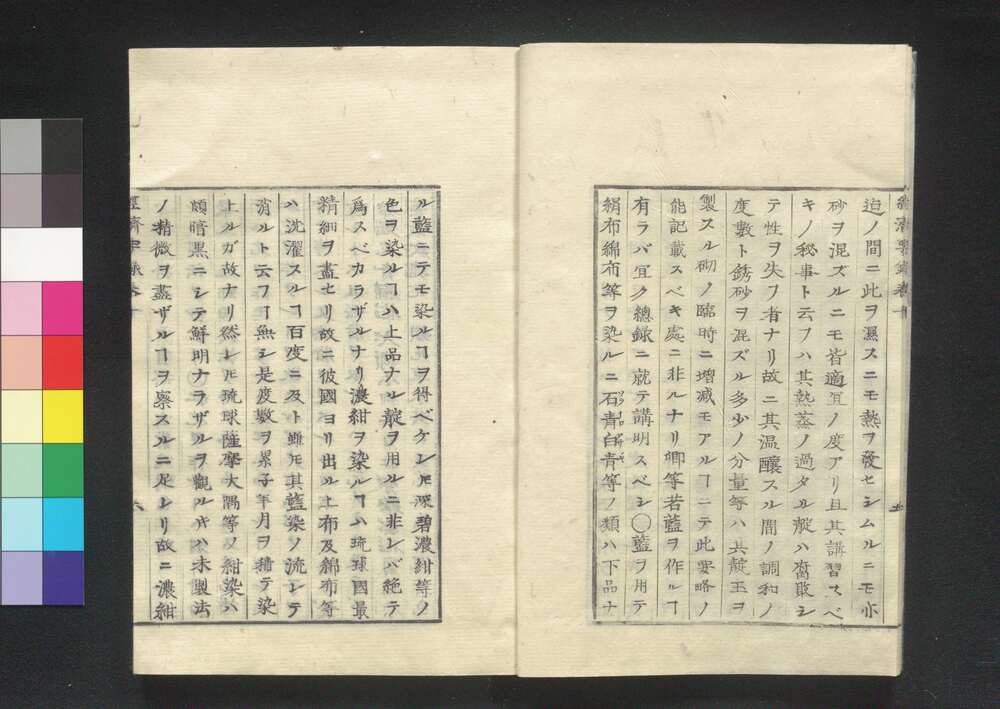 經濟要錄卷十
迨ノ間ニ此ヲ濕スニモ熱ヲ發セシムルニモ亦
砂ヲ混ズルニモ皆適宜ノ度アリ且其講習スベ
キノ秘事ト云フハ其熱蒸ノ過タル靛ハ腐敗シ
テ性ヲ失フ者ナリ故ニ其温釀スル間ノ調和ノ
度數ト銹砂ヲ混ズル多少ノ分量等ハ其靛玉ヲ
製スル砌ノ臨時ニ增减モアルヿニテ此要略ノ
能記載スベキ處ニ非ルナリ卿等若藍ヲ作ルヿ
有ラバ宜ク總錄ニ就テ講明スベシ〇藍ヲ用テ
絹布綿布等ヲ染ルニ石靑白靑等ノ類ハ下品ナ
ル藍ニテモ染ルヿヲ得ベケレ𪜈深碧濃紺等ノ
色ヲ染ルヿハ上品ナル靛ヲ用ルニ非レバ絶テ
爲スベカラザルナリ濃紺ヲ染ルヿハ琉球國最
精細ヲ盡セリ故ニ彼國ヨリ出ル上布及綿布等
ハ洗濯スルヿ百度ニ及ト雖𪜈其藍染ノ流レテ
消ルト云フヿ無シ是度數ヲ累子年月ヲ積テ染
上ルガ故ナリ然レ𪜈琉球薩摩大隅等ノ紺染ハ
頗暗黒ニシテ鮮明ナラザルヲ觀ル片ハ未製法
ノ精微ヲ盡ザルヿヲ察スルニ足レリ故ニ濃紺